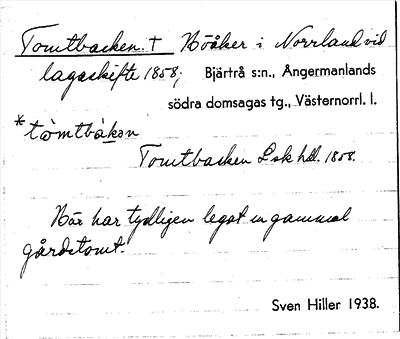 Tomtbacken. † Nöåker i Norrland vid
lagaskifte 1858; Bjärtrå s:n., Ångermanlands
södra domsagas tg., Västernorrl. l.
*tòmtbàkan
Tomtbacken Lsk hdl. 1858.
Här har tydligen legat en gammal
gårdstomt.
Sven Hiller 1938.